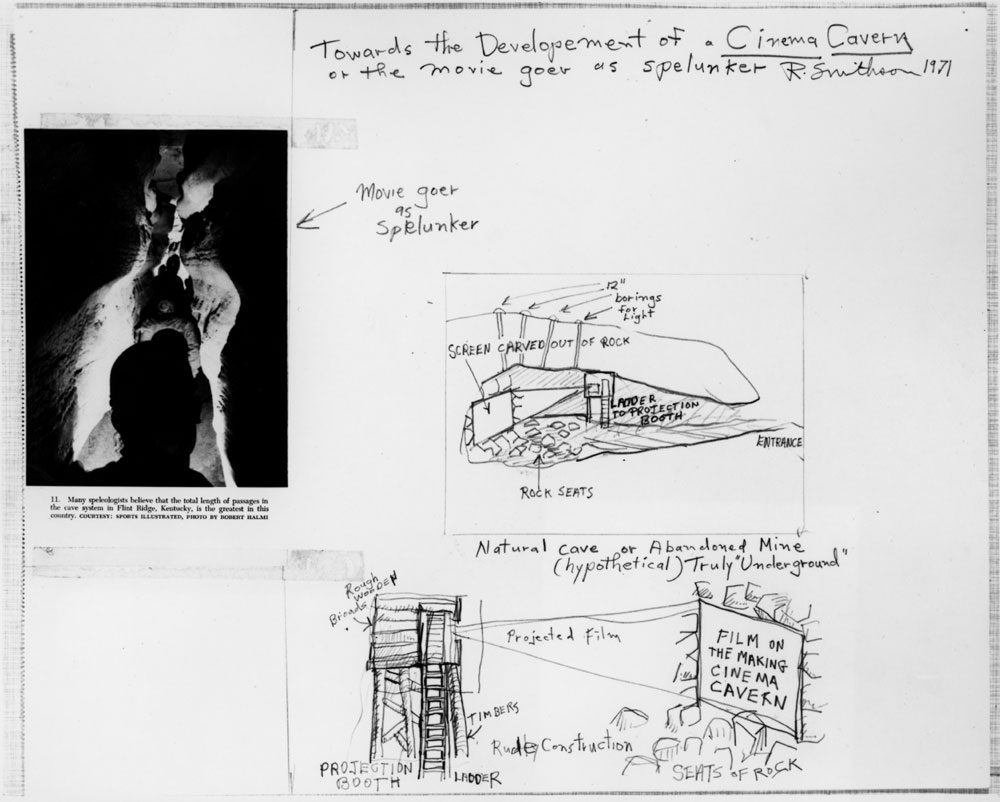 Towards the Developement of a Cinema Cavern
or the movie goer as spelunker R. Smithson 1971
Movie goer
as
Spelunker
11. Many speleologists believe that the total length of passages in
the cave system in Flint Ridge, Kentucky, is the greatest in this
country. COURTESY: SPORTS ILLUSTRATED, PHOTO BY ROBERT HALMI
12"
borings
for
Light
SCREEN CARVED OUT OF ROCK
LADDER
TO PROJECTION
BOOTH
ENTRANCE
ROCK SEATS
Natural cave or Abandoned Mine
(hypothetical) Truly "Underground"
Rough
WOODEN
Broads
Projected Film
FILM ON
THE MAKING
CINEMA
CAVERN
TIMBERS
Rude Construction
PROJECTION
BOOTH
LADDER
SEATS OF ROCK